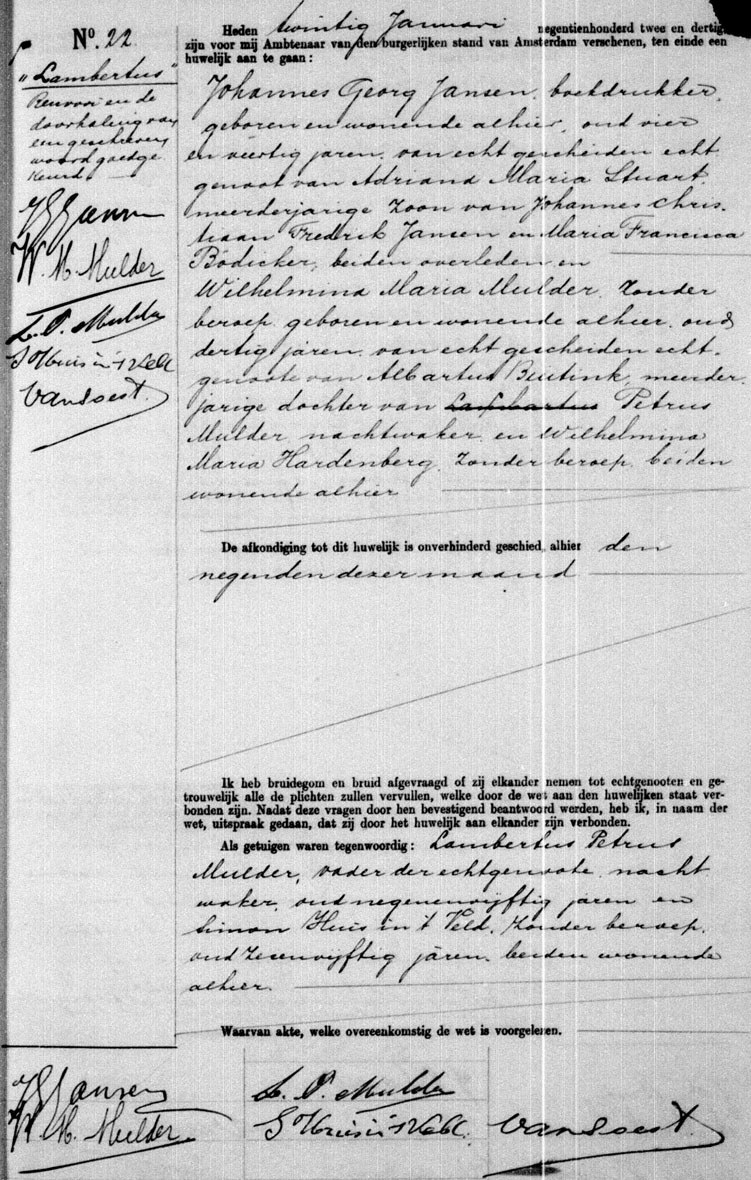 No. 22.
"Lambertus"
Renvooi en de
doorhaling van
een geschreven
woord goedge
keurd.
JGJansen
W. M. Mulder
L. P. Mulder
S Huis in 't Veld
van Soest.
Heden twintig Januari negentienhonderd twee en dertig
zijn voor mij Ambtenaar van den burgerlijken stand van Amsterdam verschenen, ten einde een
huwelijk aan te gaan:
Johannes Georg Jansen, boekdrukker,
geboren en wonende alhier, oud vier
en veertig jaren, van echt gescheiden echt
genoot van Adriana Maria Stuart,
meerderjarige zoon van Johannes Chris-
tiaan Fredrik Jansen en Maria Francisca
Bödicker, beiden overleden en
Wilhelmina Maria Mulder, zonder
beroep, geboren en wonende alhier, oud
dertig jaren, van echt gescheiden echt-
genoote van Albartus Buitink, meerder
jarige dochter van Petrus
Mulder, nachtwaker, en Wilhelmina
Maria Hardenberg, zonder beroep, beiden
wonende alhier
De afkondiging tot dit huwelijk is onverhinderd geschied alhier den
negenden dezer maand
Ik heb bruidegom en bruid afgevraagd of zij elkander nemen tot echtgenooten en ge-
trouwelijk alle de plichten zullen vervullen, welke door de wet aan den huwelijken staat ver-
bonden zijn. Nadat deze vragen door hen bevestigend beantwoord werden, heb ik, in naam der
wet, uitspraak gedaan, dat zij door het huwelijk aan elkander zijn verbonden.
Als getuigen waren tegenwoordig: Lambertus Petrus
Mulder, vader der echtgenoote, nacht
waker, oud negenenvijftig jaren en
Simon Huis in 't Veld, zonder beroep,
oud zesenvijftig jaren, beiden wonende
alhier.
Waarvan akte, welke overeenkomstig de wet is voorgelezen.
JGJansen
W. M. Mulder
L. P. Mulder
S Huis in 't Veld
van Soest.